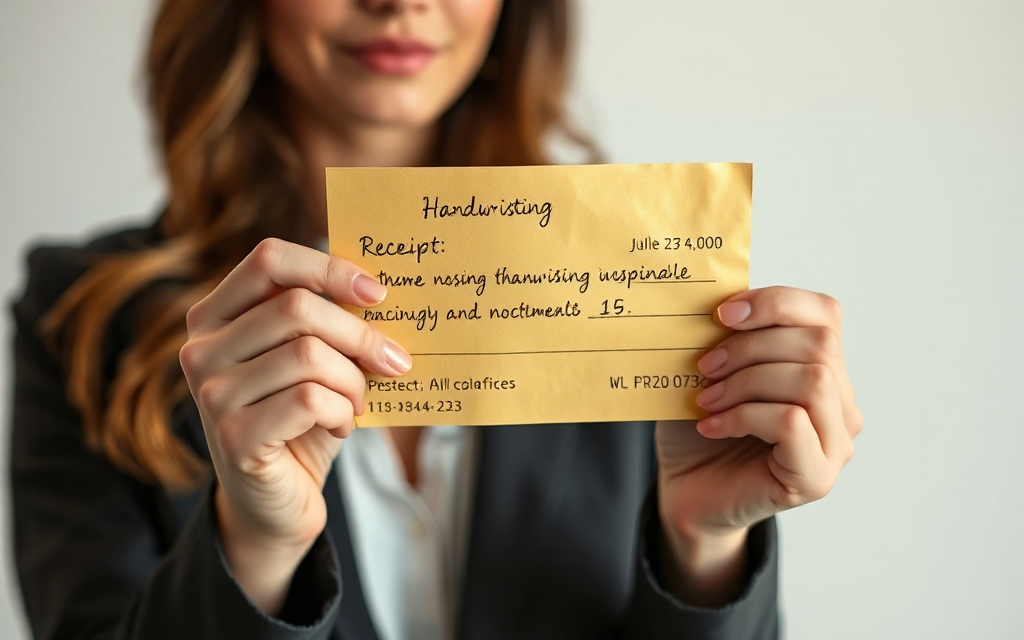 Handwristing
Receipt:
Julle 23 4,000
thwre nosing thanwrising wespinable
and noctiments 15.
Pestect; All colafices
WL PR20 073
118-1844-223